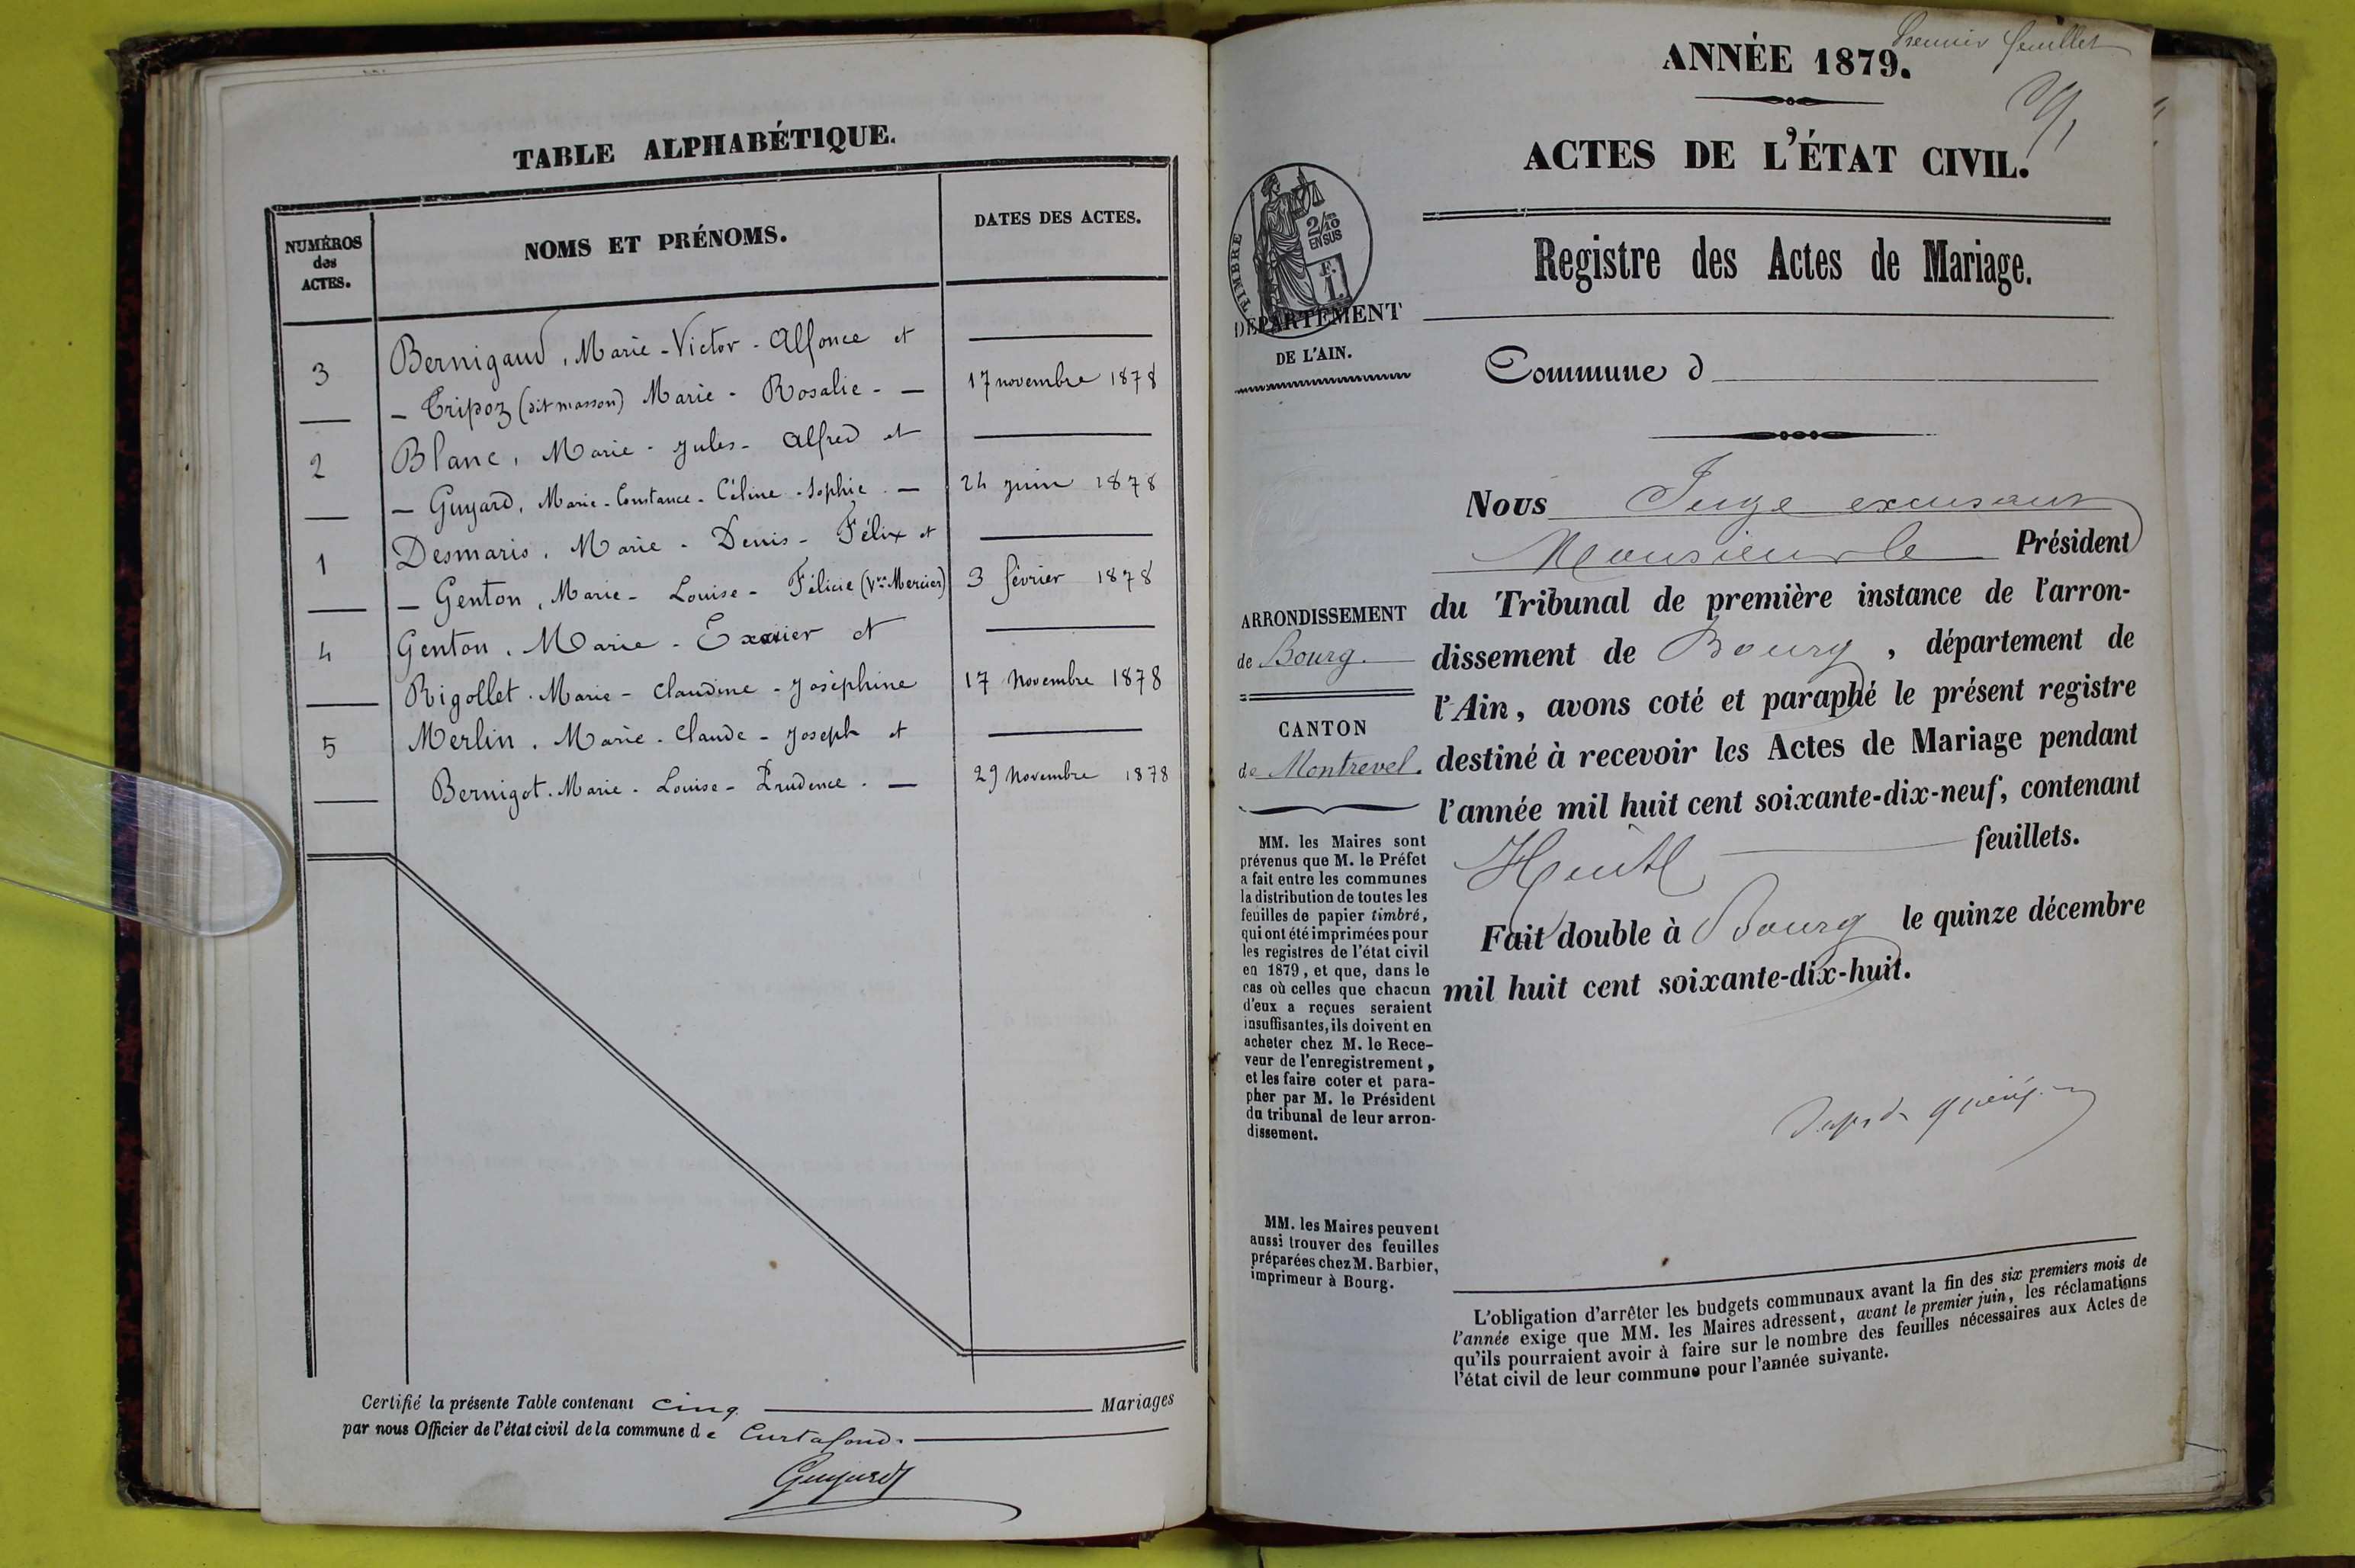 TABLE ALPHABÉTIQUE.
NUMÉROS des ACTES.
NOMS ET PRÉNOMS.
DATES DES ACTES.
3 Bernigaud, Marie-Victor-Alfonce et
— Tripoz (dit masson) Marie-Rosalie — 17 novembre 1878
2 Blanc, Marie-Jules-Alfred et
— Guyard, Marie-Constance-Céline-Sophie — 24 juin 1878
1 Desmaris, Marie-Denis-Félix et
— Genton, Marie-Louise-Félicie (Vve Mercier) 3 février 1878
4 Genton, Marie-Exavier et
Rigollet Marie-Claudine-Joséphine 17 Novembre 1878
5 Merlin, Marie-Claude-Joseph et
Bernigot Marie-Louise-Prudence — 29 Novembre 1878
Certifié la présente Table contenant cinq Mariages
par nous Officier de l'état civil de la commune de Curtafond.
Guyard
Premier feuillet
ANNÉE 1879.
ACTES DE L'ÉTAT CIVIL.
TIMBRE
2/10 EN SUS
F. 1.
DÉPARTEMENT
DE L'AIN.
Registre des Actes de Mariage.
Commune d
ARRONDISSEMENT
de Bourg.
CANTON
de Montrevel.
MM. les Maires sont
prévenus que M. le Préfet
a fait entre les communes
la distribution de toutes les
feuilles de papier timbré,
qui ont été imprimées pour
les registres de l'état civil
en 1879, et que, dans le
cas où celles que chacun
d'eux a reçues seraient
insuffisantes, ils doivent en
acheter chez M. le Rece-
veur de l'enregistrement,
et les faire coter et para-
pher par M. le Président
du tribunal de leur arron-
dissement.
MM. les Maires peuvent
aussi trouver des feuilles
préparées chez M. Barbier,
imprimeur à Bourg.
Nous Juge excusant
Monsieur le Président
du Tribunal de première instance de l'arron-
dissement de Bourg, département de
l'Ain, avons coté et paraphé le présent registre
destiné à recevoir les Actes de Mariage pendant
l'année mil huit cent soixante-dix-neuf, contenant
Huit feuillets.
Fait double à Bourg le quinze décembre
mil huit cent soixante-dix-huit.
L'obligation d'arrêter les budgets communaux avant la fin des six premiers mois de
l'année exige que MM. les Maires adressent, avant le premier juin, les réclamations
qu'ils pourraient avoir à faire sur le nombre des feuilles nécessaires aux Actes de
l'état civil de leur commune pour l'année suivante.